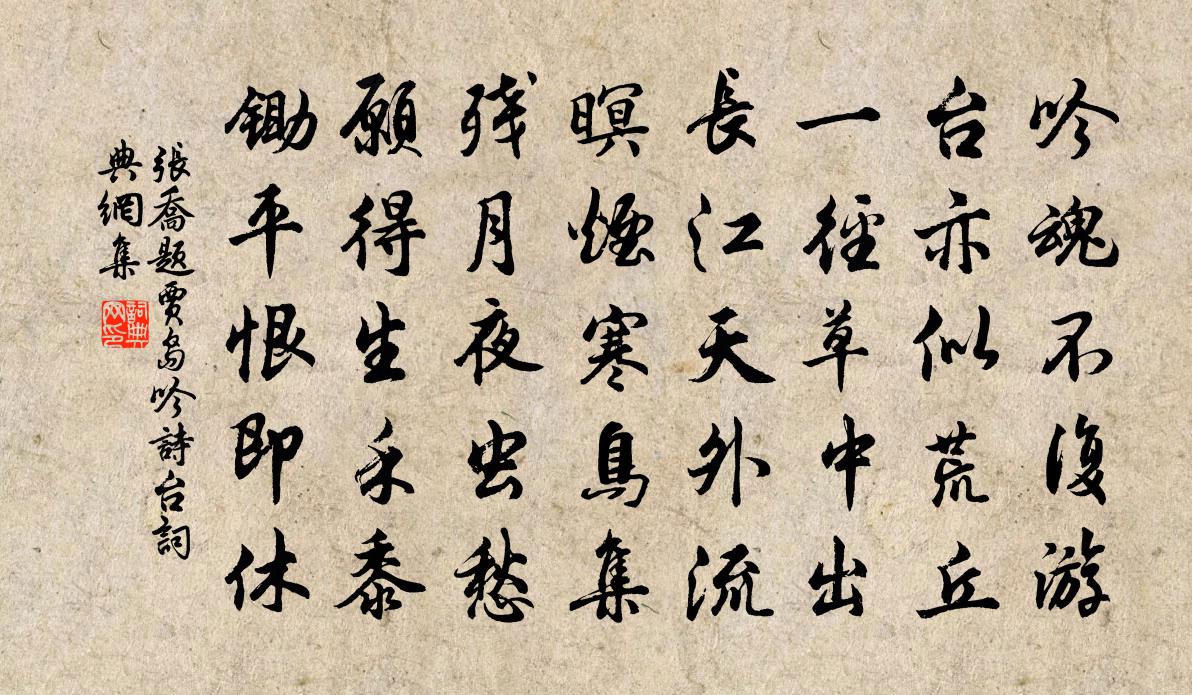 吟魂不復游
台亦似荒丘
一徑草中出
長江天外流
暝煙寒鳥集
残月夜虫愁
願得生禾黍
鋤平恨即休
張喬題賈島吟詩台詞
典網集
詞典
网印